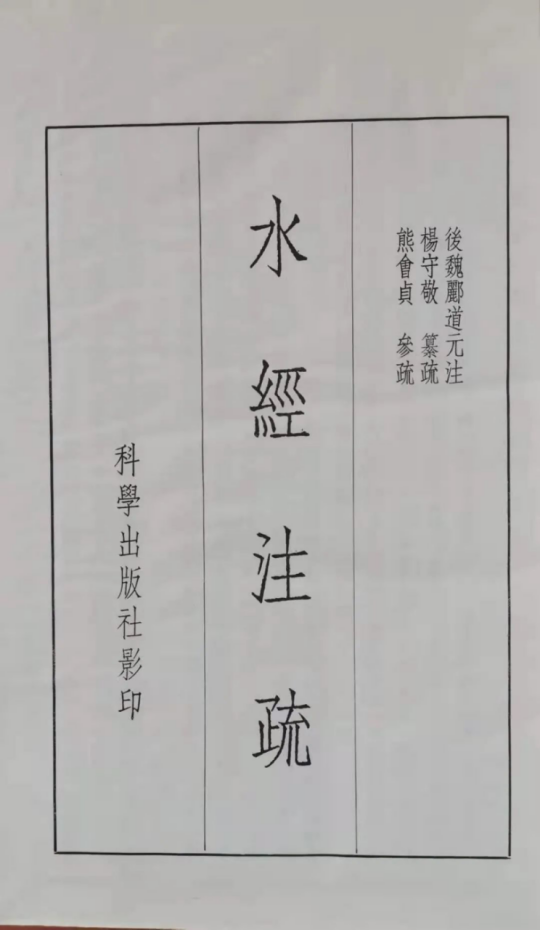 後魏酈道元注
楊守敬 纂疏
熊會貞 參疏
水經注疏
科學出版社影印